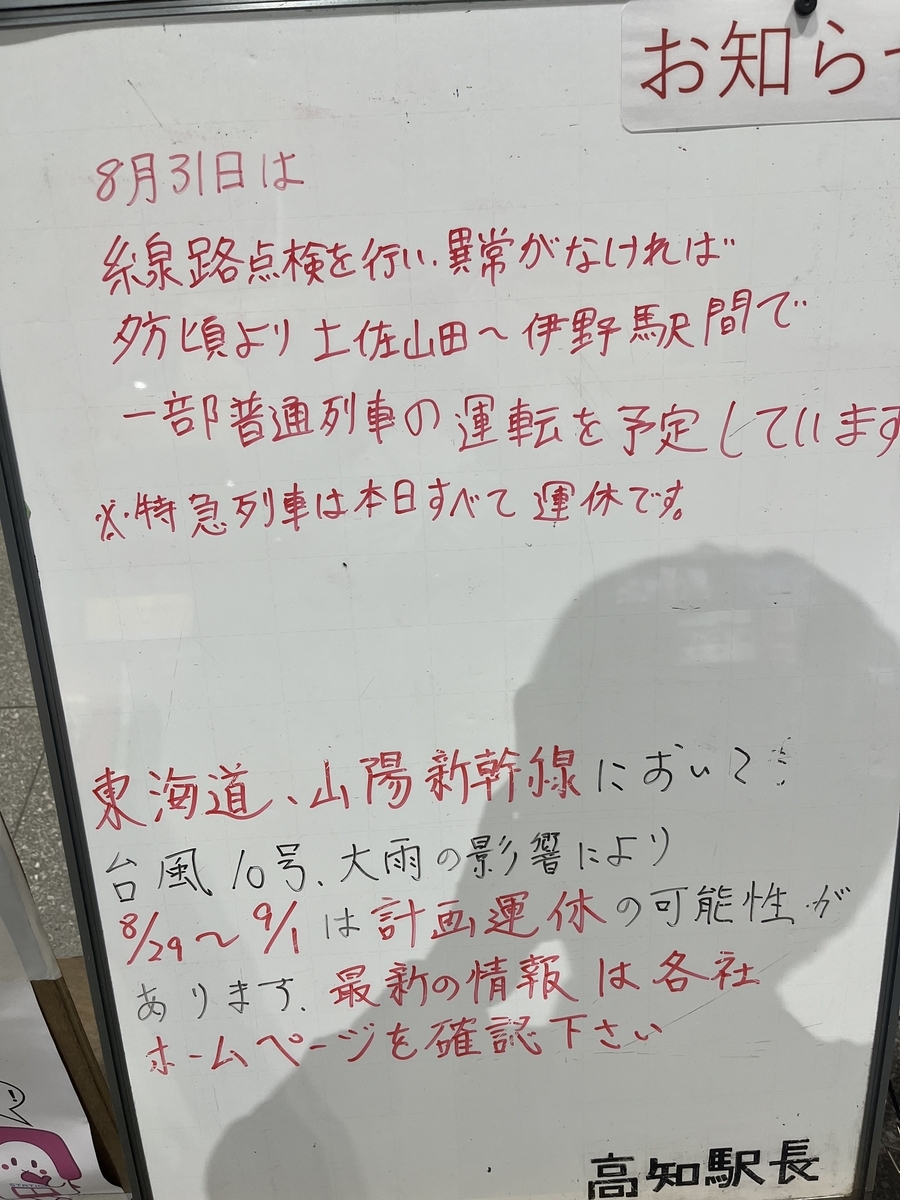 お知らせ
8月31日は
線路点検を行い、異常がなければ
夕方頃より土佐山田～伊野駅間で
一部普通列車の運転を予定しています
※特急列車は本日すべて運休です。
東海道、山陽新幹線において
台風10号、大雨の影響により
8/29～9/1は計画運休の可能性が
あります。最新の情報は各社
ホームページを確認下さい
高知駅長